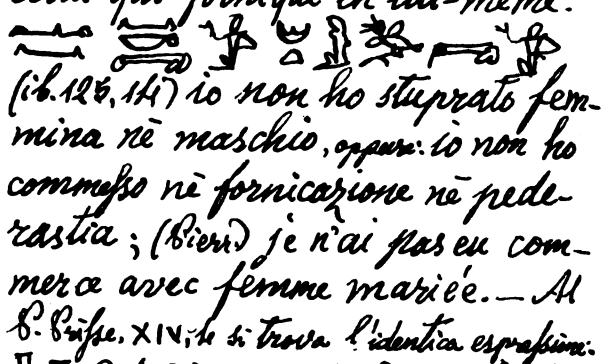 (ib. 125, 14) io non ho stuprato fem-
mina nè maschio, oppure: io non ho
commesso nè fornicazione nè pede-
rastia; (Pierr.) je n'ai pas eu com-
merce avec femme mariée. — Al
P. Prisse, XIV, si trova l'identica espressione: